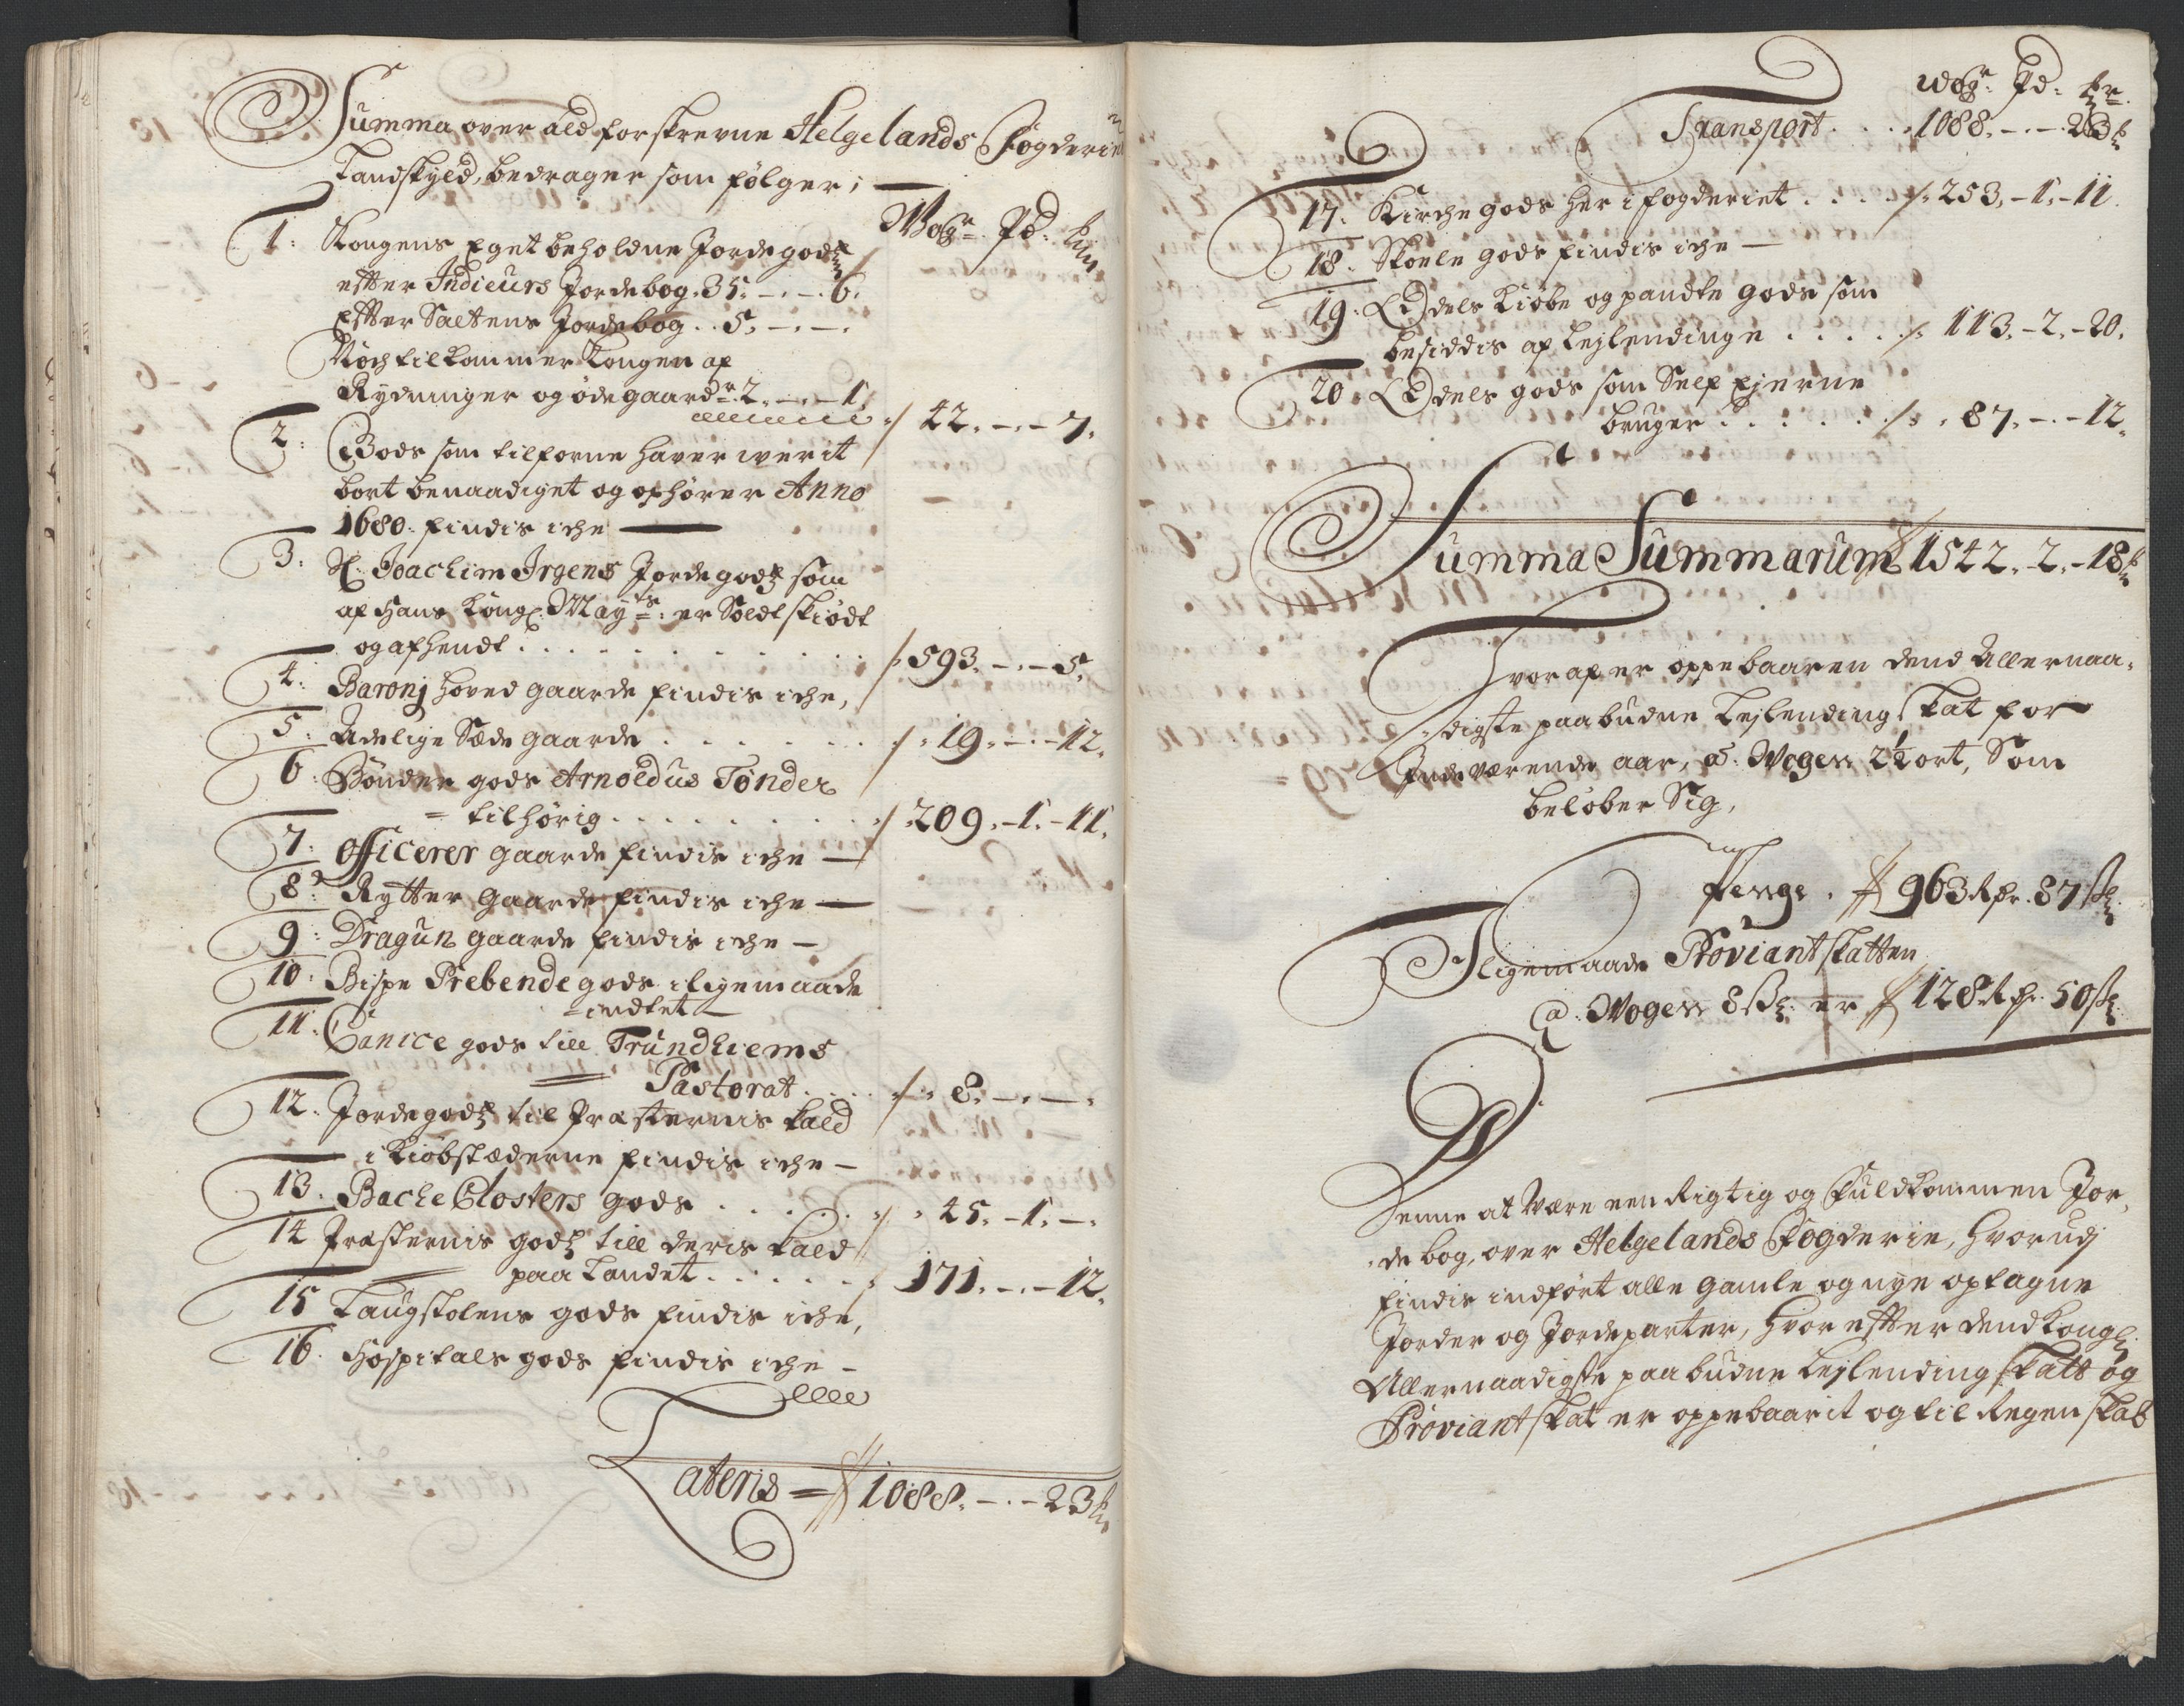 Summa over ald forskrevne Helgelands Fogderies
Landskyld, bedrager som følger;
Woger Pd: mk
1: Kongens Eget beholdne Jordegodtz
efter Indieurs Jordebog. 35. -.-. 6.
Efter Saltens Jordebog . . 5. -.-.
Noch tilkommer Kongen af
Rydninger og ødegaarde 2. -.- 1.
42. -.- 7.
2: Gods som tilforne hafver werit
bort benaadiget og ophører Anno
1680: findis iche
3. Sl: Joachim Irgens Jordegodtz som
af Hans Kongl: Mayts: er Soldt skiødt
og afhendt . . . . . . 593. -.- 5.
4: Baronj Hoved gaarde findis iche,
5: Adelige Sæde gaarde . . . . . . 19. -.- 12.
6: Bønder gods Arnoldus Tønder
= tilhørig . . . . . . 209. - 1. - 11.
7: officerer gaarde findis iche —
8: Rytter Gaarde findis iche —
9: Dragun gaarde findis iche —
10: Bispe Prebende gods iligemaade
= indtet —
11: Canice gods till Trundhiems
Pastorat . . . . 8. -.-.
12. Jordegodtz til Præsternis kald
i Kiøbstæderne findis iche —
13. Bache Closters gods . . . . . . 45. - 1. -.
14 Præsternis godtz till deris kald
paa Landet . . . . . . 171. -.- 12.
15 Laugstolens gods findis iche,
16. Hospitals gods findis iche —
Lateris = 1088. -.- 23 mk
Woger Pd: mk
Transport . . . . 1088. -.- 23 mk
17. Kirche gods her i fogderiet . . . . 253. - 1. - 11.
18. Skoele gods findis iche —
19. Odels Kiøbe og pandte gods som
besiddis af Lejlendinge . . . . . 113. - 2. - 20.
20. Odels gods som Self Ejerne
bruger . . . . . . 87. -.- 12.
Summa Summarum 1542. - 2. - 18 mk
Hvoraf er oppebaaren dend Allernaa-
digste paabudne Lejlending Skat for
Inde værende aar, a Wogen 2½ ort, Som
beløber Sig,
Penge . 963 Rdr. 87 s
Iligemaade Proviantskatten
a. Wogen 8 s: er 128 Rdr. 50 s
Denne at være een Rigtig og Fuldkommen Jor-
de bog, over Helgelands Fogderie, hvorudj
findis indført alle gamle og nye optagne
Jorder og Jordeparter, hvor efter dend Kongl:
Allernaadigste paabudne Lejlending Skatt og
Proviantskat er oppebaarit og til Regenskab